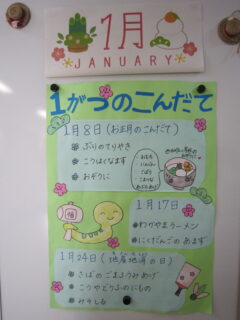 1月
★JANUARY★
1がつのこんだて
1月8日(お正月のこんだて)
ぶりのてりやき
こうはくなます
おぞうに
1月17日
わかやまラーメン
にくだんごのあまず
福
1月24日(地産地消の日)
さばのごまふうみあげ
こうやどうふのにもの
みそしる